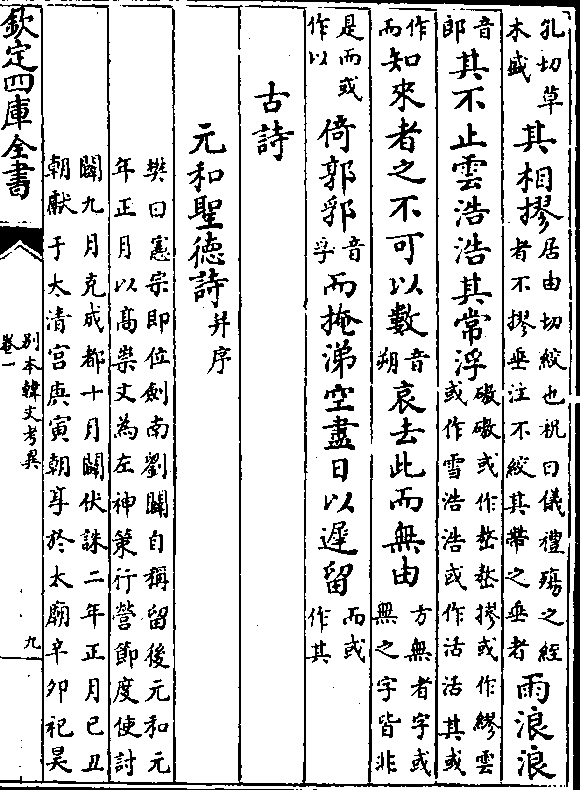 孔切草木盛其相摎居由切絞也祝曰儀禮殤之絰者不摎垂注不絞其帶之垂者雨浪浪
音郎其不止雲浩浩其常浮礉礉或作嶅嶅摎或作繆雲或作雪浩浩或作活活其或
作而知來者之不可以數音朔哀去此而無由方無者字或無之字皆非
是而或作以倚郭郛音孚而掩涕空盡日以遲留而或作其
古詩
元和聖德詩并序
樊曰憲宗即位劍南劉闢自稱留後元和元年正月以髙崇文為左神策行營節度使討
闢九月克成都十月闢伏誅二年正月己丑朝獻于太清宮庚寅朝享於太廟辛卯祀昊
欽定四庫全書
别本韓文考異
卷一
九